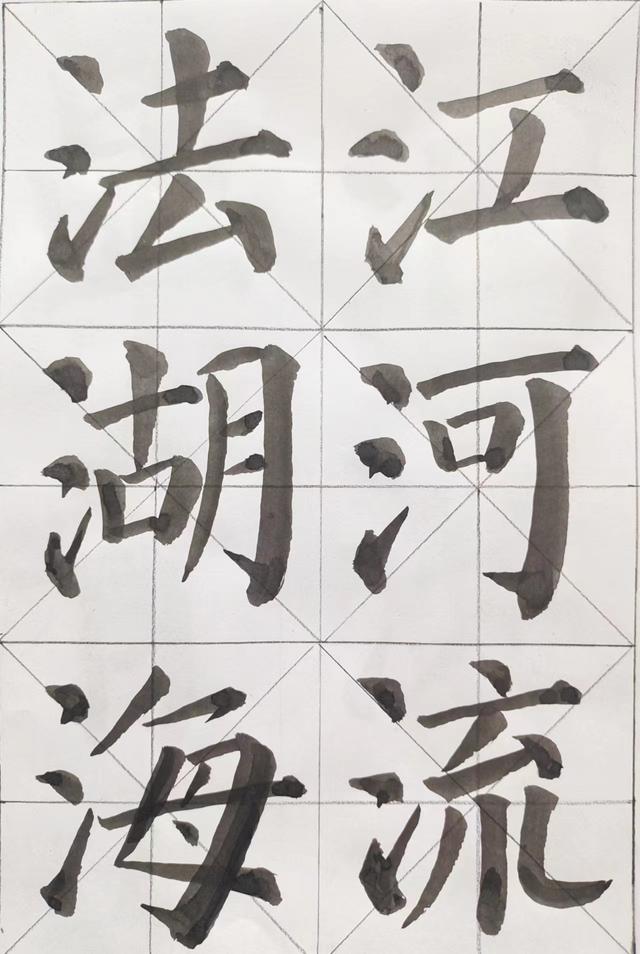 江河流
法湖海